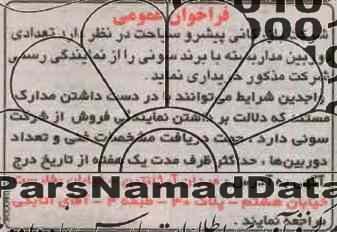 فراخوان عمومی
شرکت بازرگانی پیشرو سیاحت در نظر دارد تعدادی
دوربین مداربسته با برند سونی را از نمایندگی رسمی
شرکت مذکور خریداری نماید.
واجدین شرایط می‌توانند با در دست داشتن مدارک
مستند که دلالت بر داشتن نمایندگی فروش از شرکت
سونی دارد، جهت دریافت مشخصات فنی و تعداد
دوربین‌ها، حداکثر ظرف مدت یک هفته از تاریخ درج
ParsNamadData
خیابان هشتم - پلاک ۳۰ - طبقه ۴ - آقای اتابکی
مراجعه نمایند.